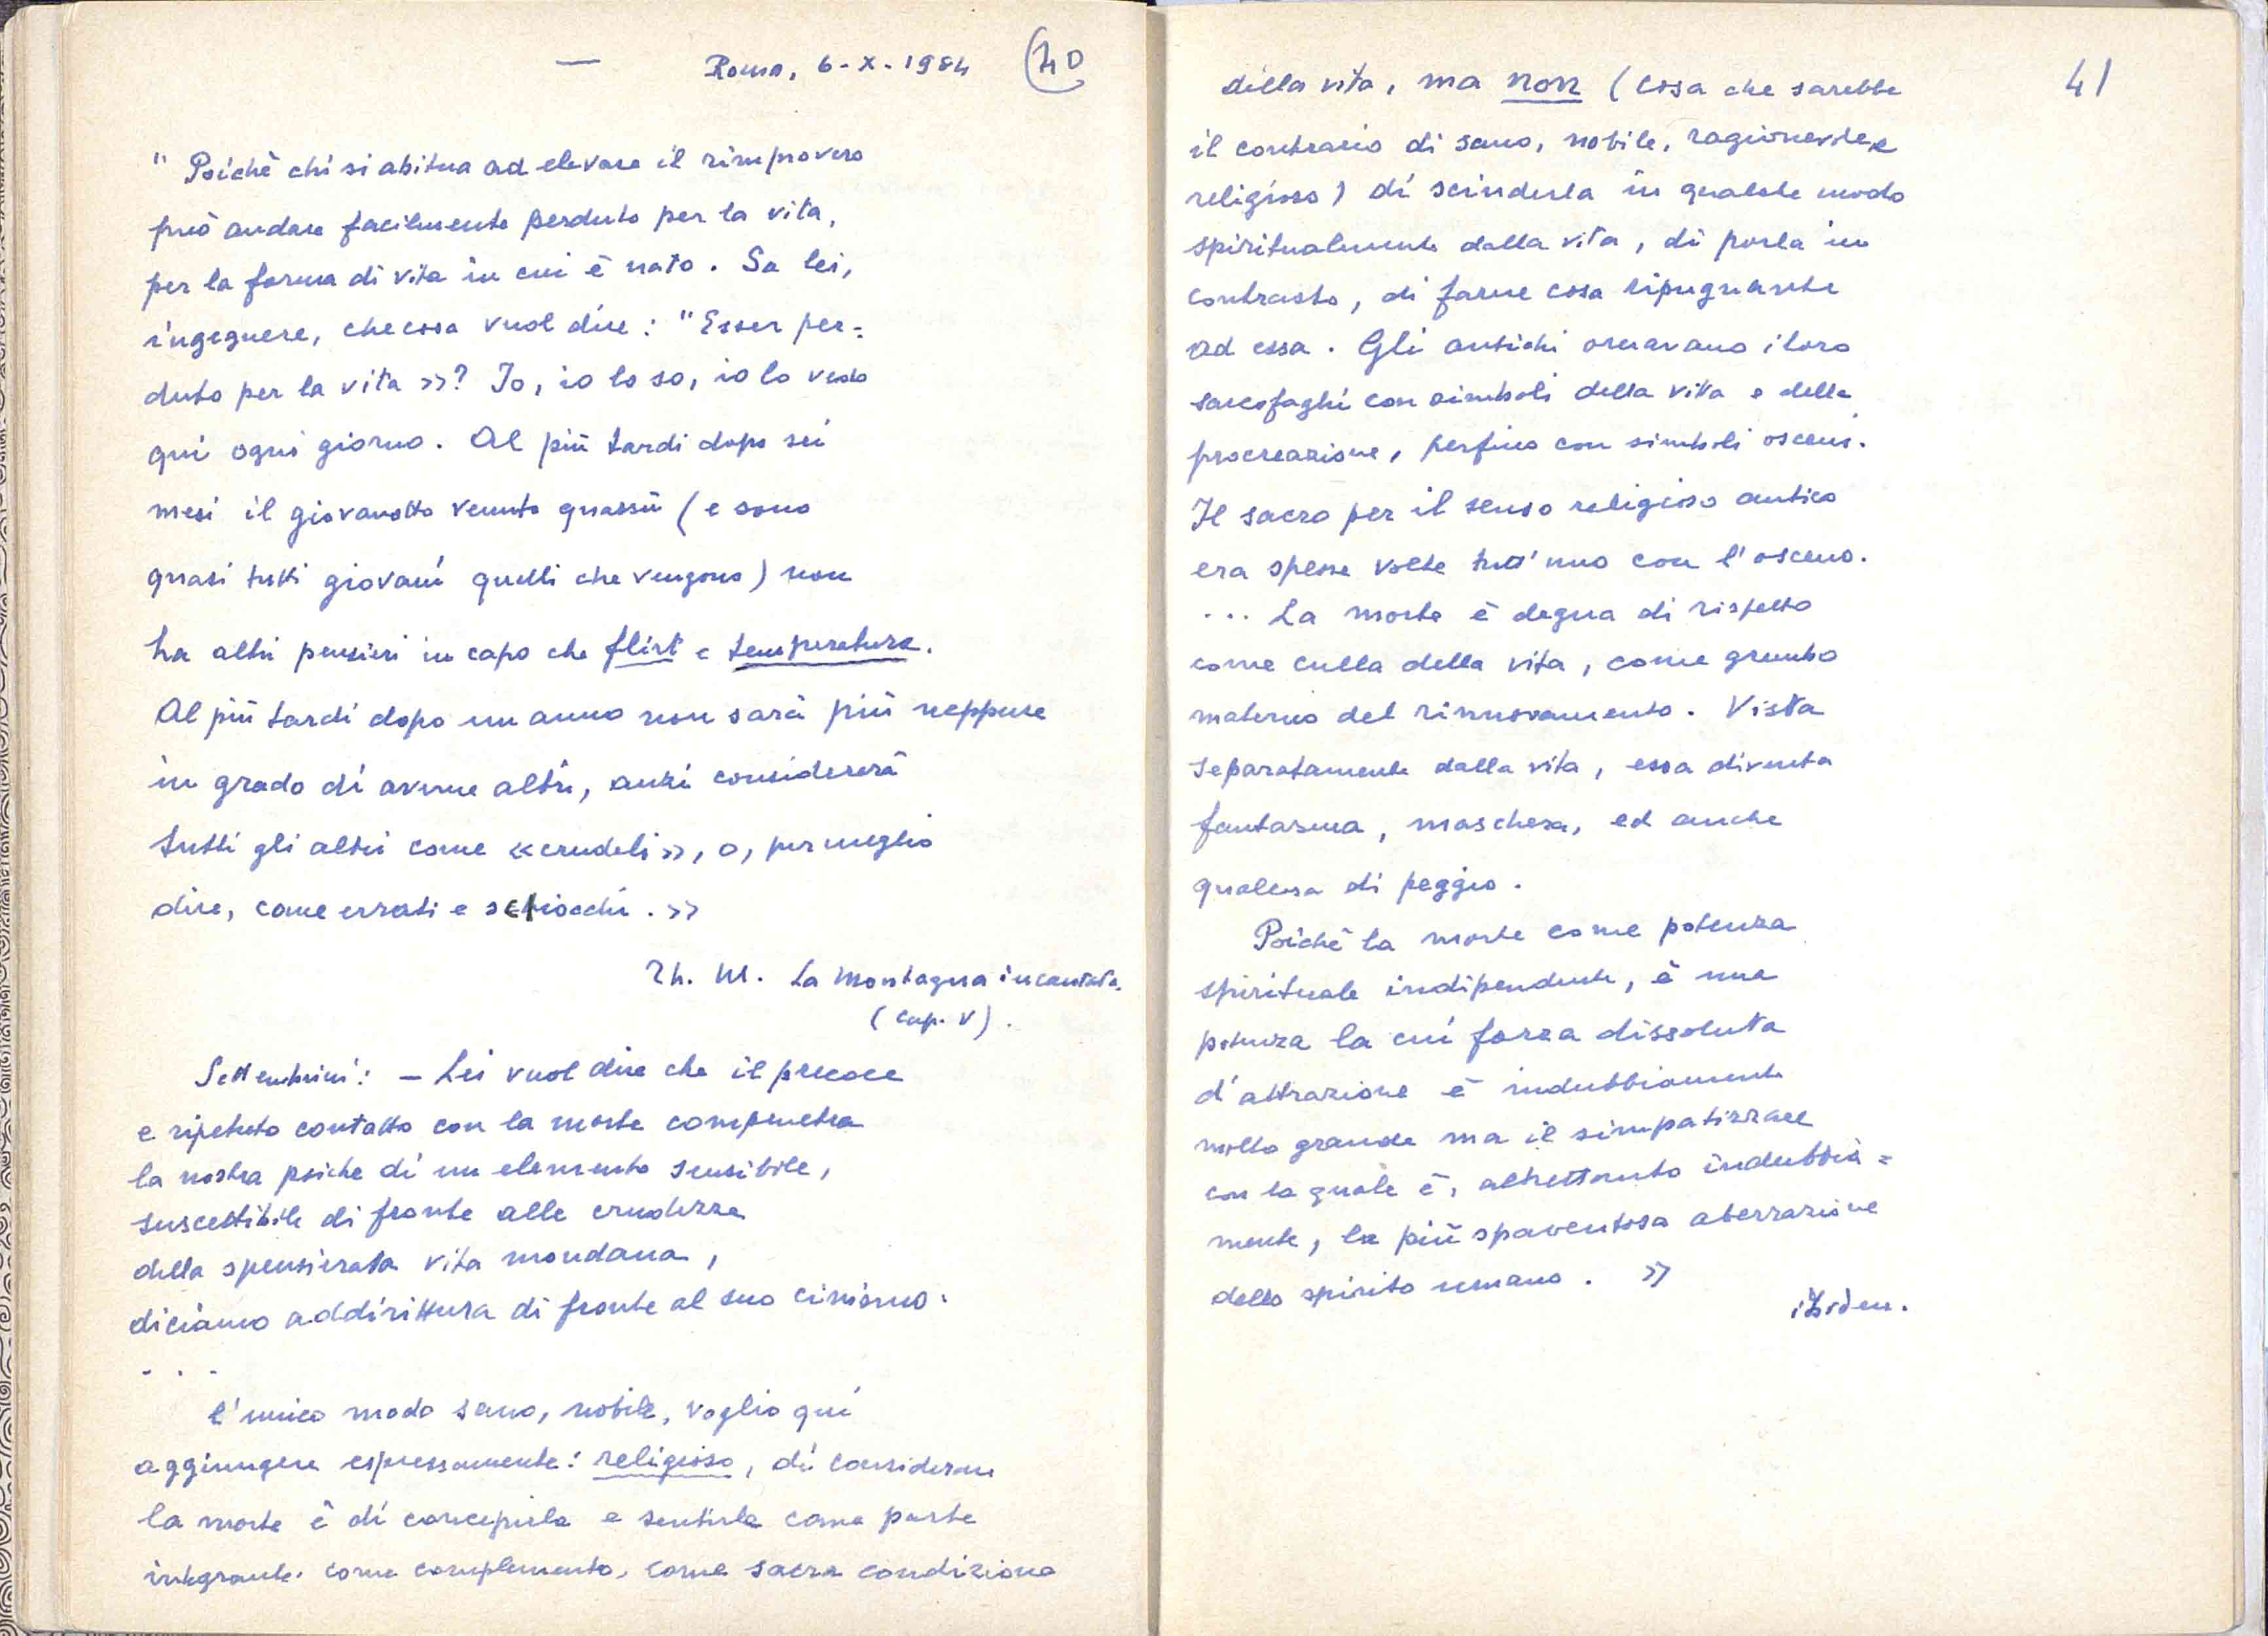 — Roma, 6-X-1984 40
" Poichè chi si abitua ad elevare il rimprovero
può andare facilmente perduto per la vita,
per la forma di vita in cui è nato. Sa lei,
ingegnere, che cosa vuol dire: "Esser per=
duto per la vita »? Io, io lo so, io lo vedo
qui ogni giorno. Al più tardi dopo sei
mesi il giovanotto venuto quassù (e sono
quasi tutti giovani quelli che vengono) non
ha altri pensieri in capo che flirt e temperatura.
Al più tardi dopo un anno non sarà più neppure
in grado di averne altri, anzi considererà
tutti gli altri come «crudeli», o, per meglio
dire, come errati e sciocchi. »
Th. M. La Montagna incantata.
(cap. V).
Settembrini: - Lei vuol dire che il precoce
e ripetuto contatto con la morte compenetra
la nostra psiche di un elemento sensibile,
suscettibile di fronte alle crudezze
della spensierata vita mondana,
diciamo addirittura di fronte al suo cinismo.
. . .
l'unico modo sano, nobile, voglio qui
aggiungere espressamente: religioso, di considerare
la morte è di concepirla e sentirla come parte
integrante, come complemento, come sacra condizione
41
della vita, ma non (cosa che sarebbe
il contrario di sano, nobile, ragionevole e
religioso) di scinderla in qualche modo
spiritualmente dalla vita, di porla in
contrasto, di farne cosa ripugnante
ad essa. Gli antichi ornavano i loro
sarcofaghi con simboli della vita e della
procreazione, perfino con simboli osceni.
Il sacro per il senso religioso antico
era spesse volte tutt'uno con l'osceno.
... La morte è degna di rispetto
come culla della vita, come grembo
materno del rinnovamento. Vista
separatamente dalla vita, essa diventa
fantasma, maschera, ed anche
qualcosa di peggio.
Poichè la morte come potenza
spirituale indipendente, è una
potenza la cui forza dissoluta
d'attrazione è indubbiamente
molto grande ma il simpatizzare
con la quale è, altrettanto indubbia=
mente, la più spaventosa aberrazione
dello spirito umano. »
ibidem.